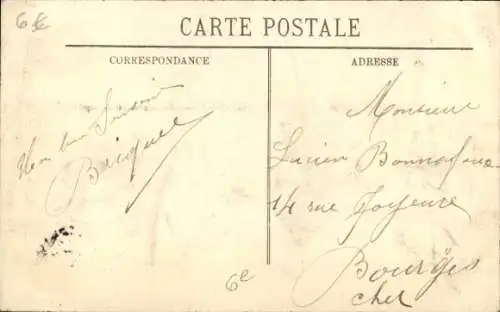 6€
CARTE POSTALE
CORRESPONDANCE
ADRESSE
Mon bon Souvenir
Monsieur
Lucien Bonnafoux
14 rue Joyeuse
Bourges
Cher
6e